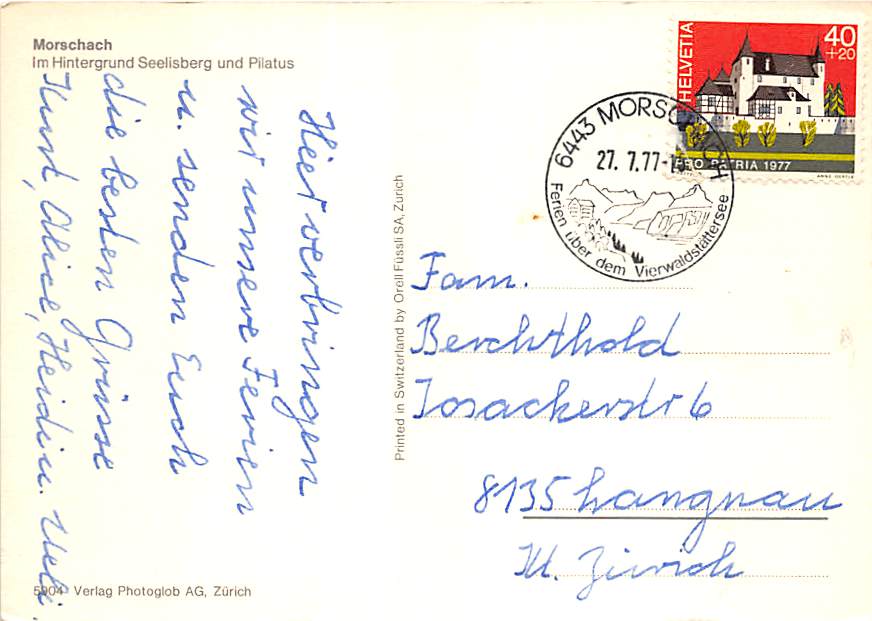 Morschach
Im Hintergrund Seelisberg und Pilatus
Hier verbringen
wir unsere Ferien
u. senden Euch
die besten Grüsse
Kurt, Alice, Heidi u. Ueli.
5904 Verlag Photoglob AG, Zürich
Printed in Switzerland by Orell Füssli SA, Zürich
HELVETIA
40
+20
PRO PATRIA 1977
6443 MORSCHACH
27.7.77-
Ferien über dem Vierwaldstättersee
Fam.
Berchthold
Josackerstr 6
8135 Langnau
Kt. Zürich